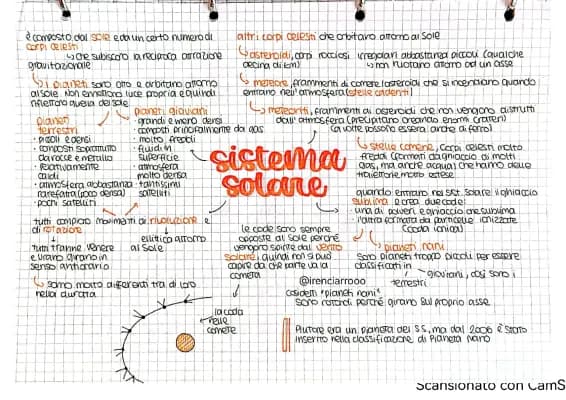 è composto dal sole e da un certo numero di
corpi celesti
che subiscono la reciproca attrazione
gravitazionale
i pianeti sono otto e orbitano attorno
al sole. Non emettono luce propria e quindi
riflettono quella del sole
pianeti
terrestri
• piccoli e densi
• composti soprattutto
da rocce e metallo
• relativamente
caldi
• atmosfera abbastanza
rarefatta (poco densa)
• pochi satelliti
pianeti gioviani
• grandi e meno densi
• composti principalmente da gas
• molto freddi
• fluidi in
superficie
• atmosfera
molto densa
• tantissimi
satelliti
tutti compiono movimenti di rivoluzione e
di rotazione
tutti tranne Venere
e Urano girano in
senso antiorario
ellittica attorno
al Sole
sono molto differenti tra di loro
nella durata
sistema
solare
altri corpi celesti che orbitano attorno al Sole
asteroidi, corpi rocciosi irregolari abbastanza piccoli (qualche
decina di km)
non ruotano attorno ad un asse
meteore, frammenti di comete/asteroidi che si incendiano quando
entrano nell'atmosfera (stelle cadenti)
meteoriti, frammenti di asteroidi che non vengono distrutti
dall'atmosfera (precipitano creando enormi crateri)
(a volte possono essere anche di ferro)
stelle comete, corpi celesti molto
freddi (formati da ghiaccio di molti
gas, ma anche acqua) che hanno delle
traiettorie molto estese
quando entrano nel sist. solare il ghiaccio
sublima e crea due code:
una di polveri e ghiaccio che sublima
l'altra formata da particelle ionizzate
(coda ionica)
le code sono sempre
opposte al sole perché
vengono spinte dal vento
solare, quindi non si può
capire da che parte va la
cometa
pianeti nani
sono pianeti troppo piccoli per essere
classificati in
gioviani, così sono i
terrestri
@irenciarrooo
cosidetti "pianeti nani"
sono rotondi perché girano sul proprio asse
la coda
nelle
comete
Plutone era un pianeta del SS, ma dal 2006 è stato
inserito nella classificazione di Pianeta nano
Scansionato con CamS